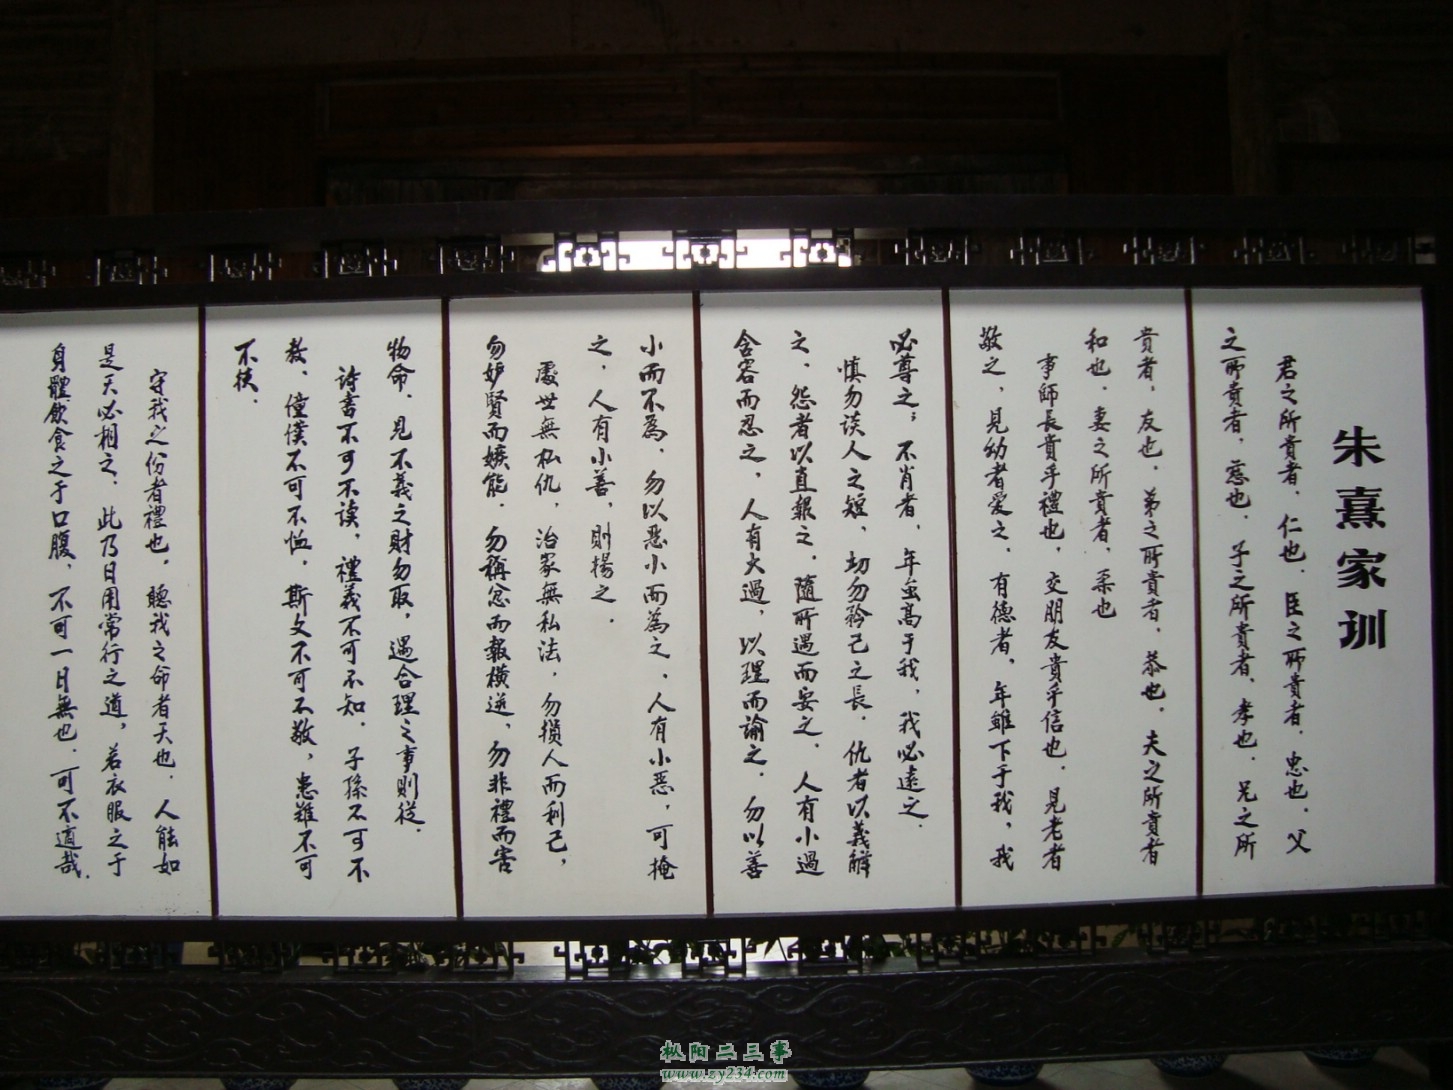 朱熹家训
君之所貴者，仁也．臣之所貴者，忠也．父
之所貴者，慈也．子之所貴者，孝也．兄之所
貴者，友也．弟之所貴者，恭也．夫之所貴者
和也．妻之所貴者，柔也
事師長貴乎禮也，交朋友貴乎信也．見老者
敬之，見幼者愛之．有德者，年雖下于我，我
必尊之；不肖者，年虽高于我，我必遠之．
慎勿談人之短，切勿矜己之長．仇者以義解
之，怨者以直報之．隨所遇而安之．人有小過
含容而忍之，人有大過，以理而諭之．勿以善
小而不為，勿以惡小而為之．人有小惡，可掩
之，人有小善，則揚之．
處世無私仇，治家無私法，勿損人而利己，
勿妒賢而嫉能．勿稱忿而報橫逆，勿非禮而害
物命．見不義之財勿取，遇合理之事則從．
詩書不可不读，禮義不可不知．子孫不可不
教，僮僕不可不恤，斯文不可不敬，患難不可
不扶．
守我之份者禮也，聽我之命者天也．人能如
是天必相之．此乃日用常行之道，若衣服之于
身體飲食之于口腹，不可一日無也．可不適哉．
枞阳二三事
www.zy234.com